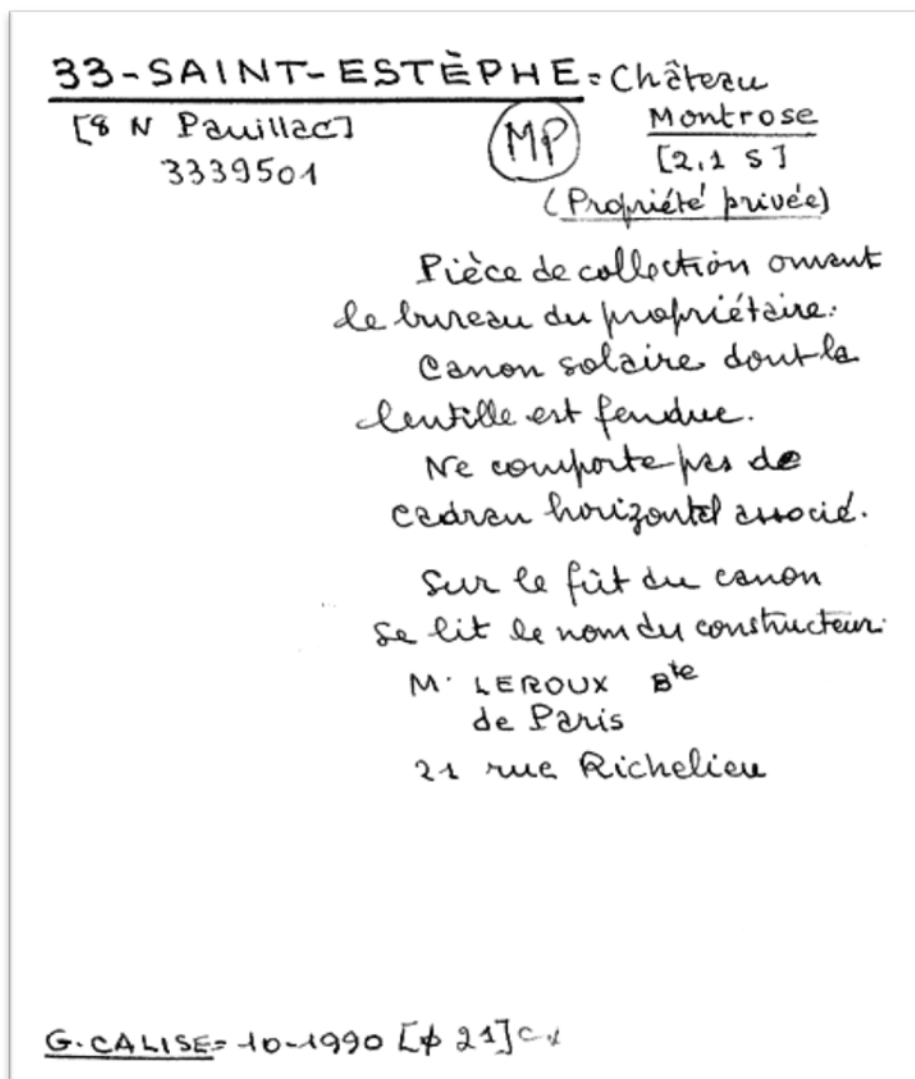 33-SAINT-ESTÈPHE = Château
Montrose
[8 N Pauillac]
MP
[2,1 S]
3339501
(Propriété privée)
Pièce de collection ornant
le bureau du propriétaire.
Canon solaire dont la
lentille est fendue.
Ne comporte pas de
cadran horizontal associé.
Sur le fût du canon
se lit le nom du constructeur:
M. LEROUX Bte
de Paris
21 rue Richelieu
G. CALISE = 10-1990 [φ 21]